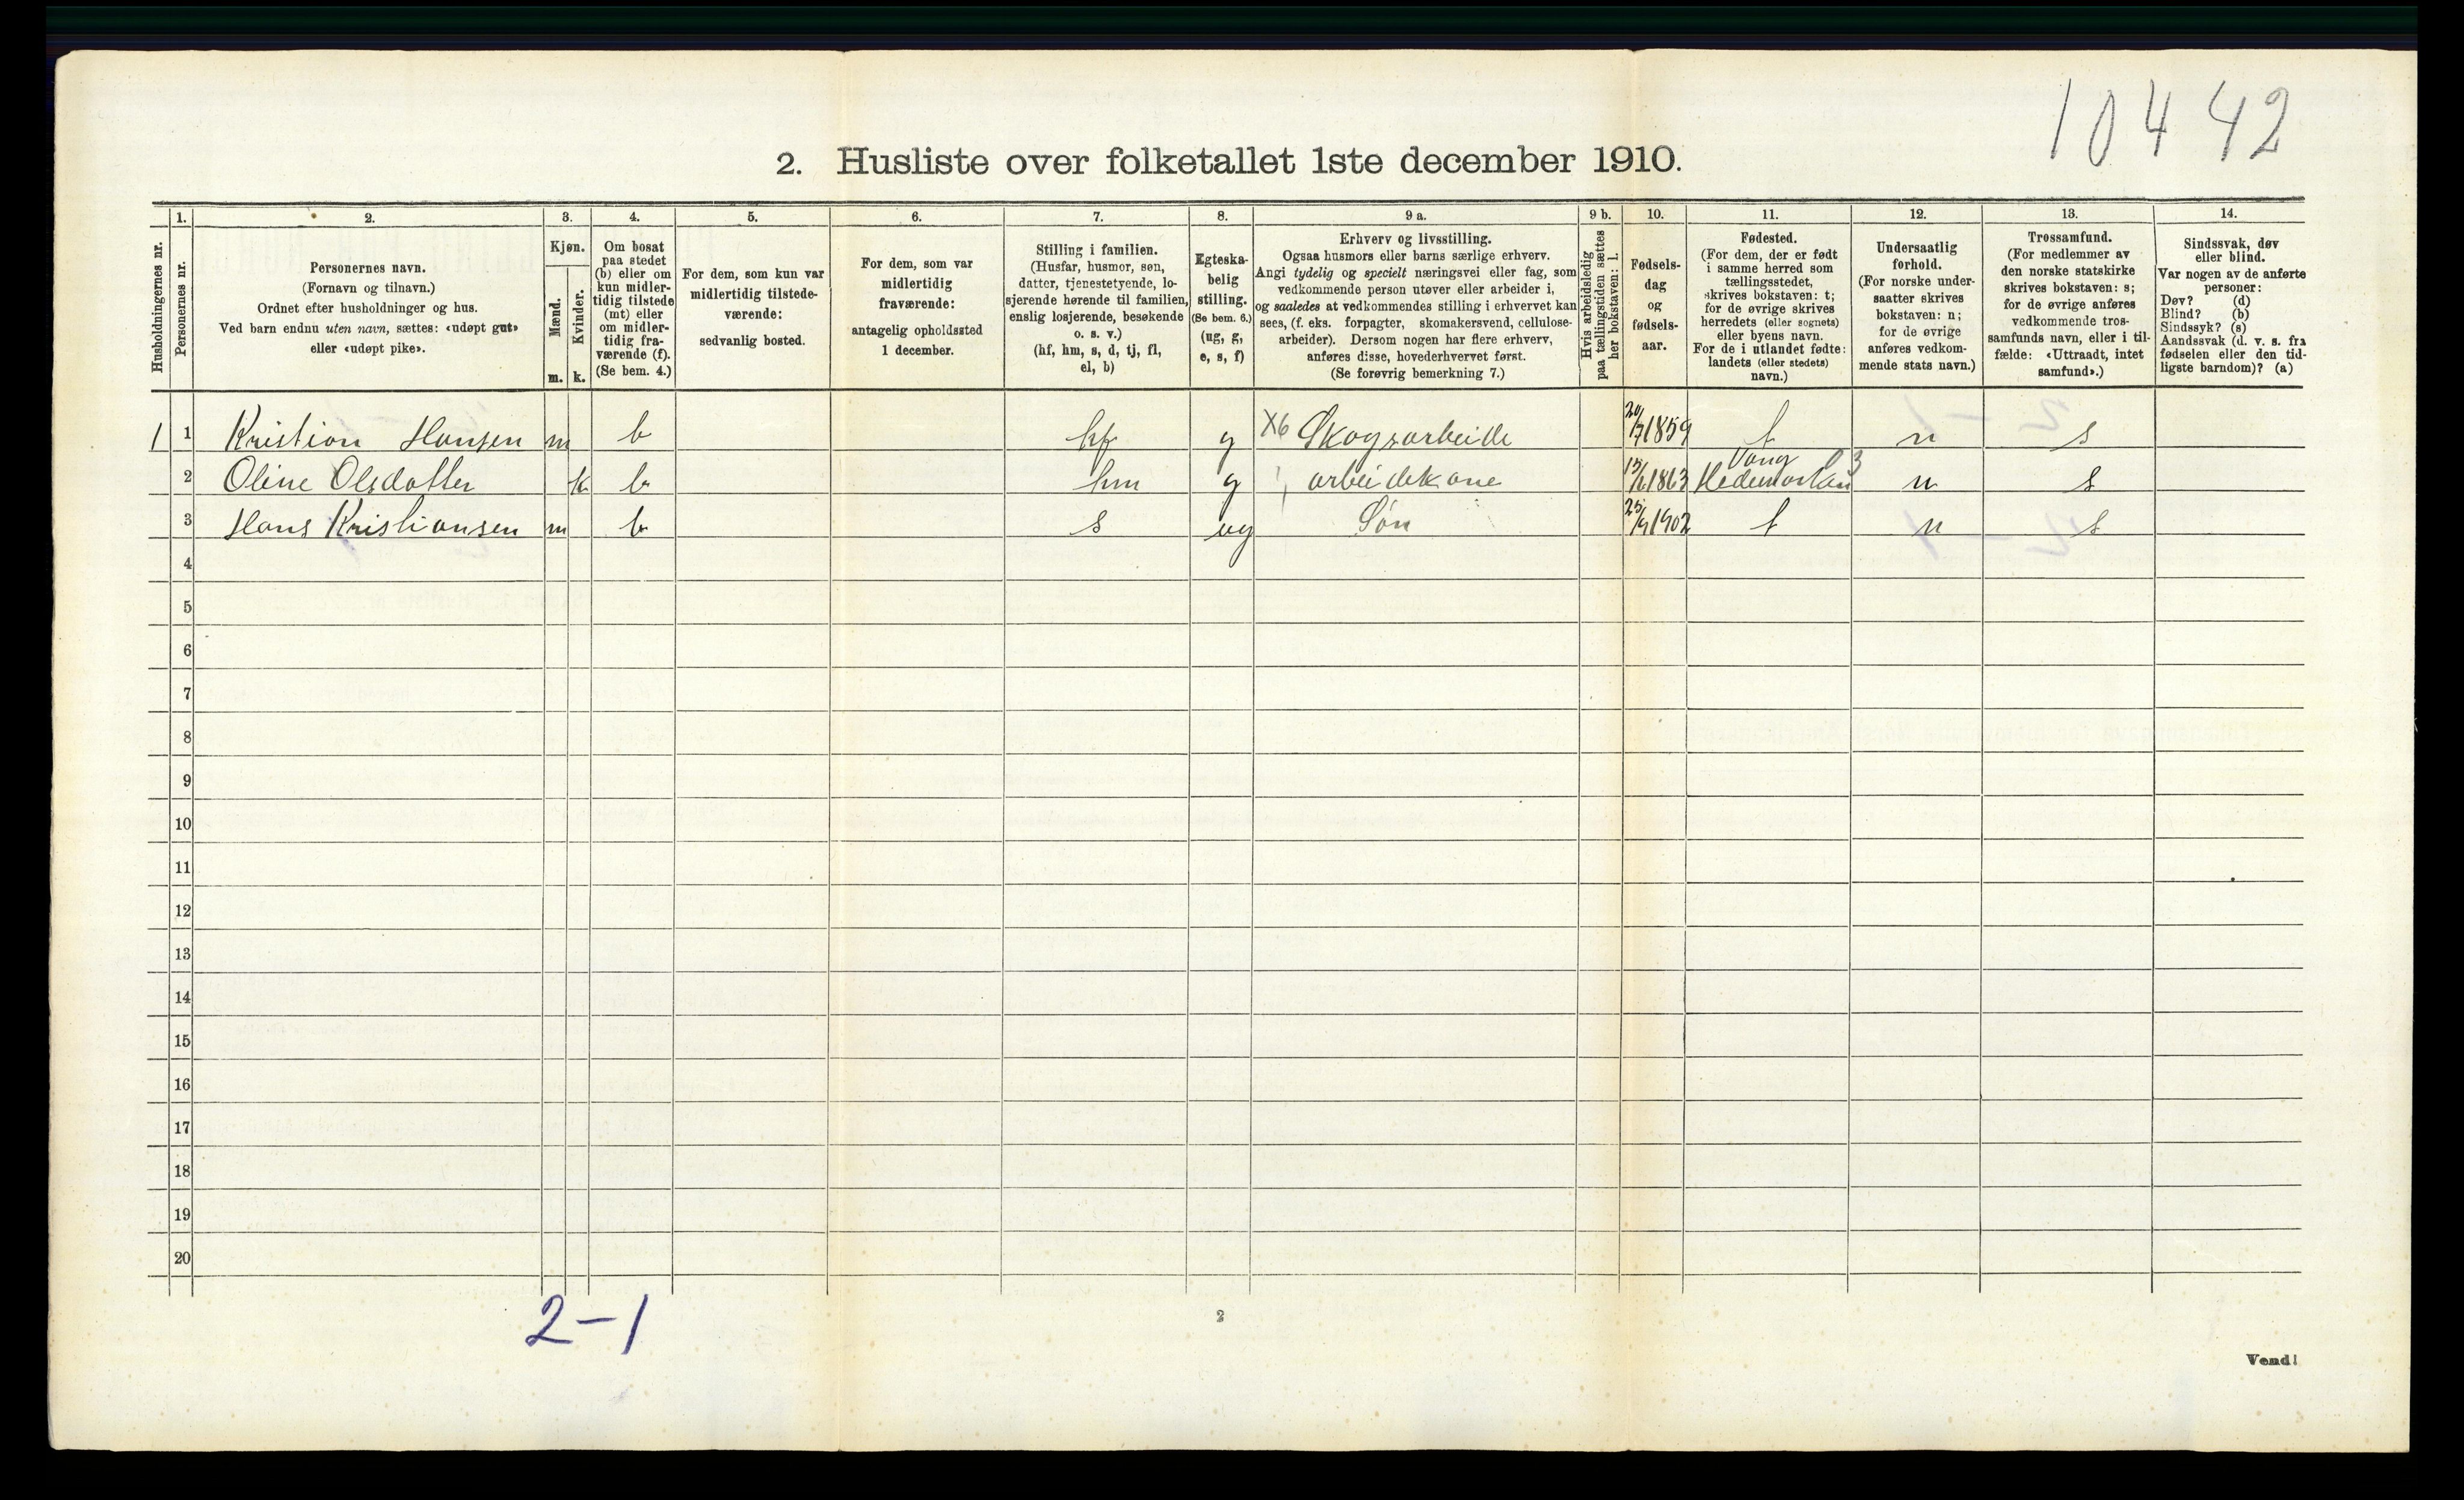 10442
2. Husliste over folketallet 1ste december 1910.
Husholdningernes nr.
1.
Personernes nr.
2.
Personernes navn.
(Fornavn og tilnavn.)
Ordnet efter husholdninger og hus.
Ved barn endnu uten navn, sættes: «udøpt gut»
eller «udøpt pike».
3.
Kjøn.
Mænd.
m.
Kvinder.
k.
4.
Om bosat
paa stedet
(b) eller om
kun midler-
tidig tilstede
(mt) eller
om midler-
tidig fra-
værende (f).
(Se bem. 4.)
5.
For dem, som kun var
midlertidig tilstede-
værende:
sedvanlig bosted.
6.
For dem, som var
midlertidig
fraværende:
antagelig opholdssted
1 december.
7.
Stilling i familien.
(Husfar, husmor, søn,
datter, tjenestetyende, lo-
sjerende hørende til familien,
enslig losjerende, besøkende
o. s. v.)
(hf, hm, s, d, tj, fl,
el, b)
8.
Egteska-
belig
stilling.
(Se bem. 6.)
(ug, g,
e, s, f)
9 a.
Erhverv og livsstilling.
Ogsaa husmors eller barns særlige erhverv.
Angi tydelig og specielt næringsvei eller fag, som
vedkommende person utøver eller arbeider i,
og saaledes at vedkommendes stilling i erhvervet kan
sees, (f. eks. forpagter, skomakersvend, cellulose-
arbeider). Dersom nogen har flere erhverv,
anføres disse, hovederhvervet først.
(Se forøvrig bemerkning 7.)
9 b.
Hvis arbeidsledig
paa tællingstiden sættes
her bokstaven: l.
10.
Fødsels-
dag
og
fødsels-
aar.
11.
Fødested.
(For dem, der er født
i samme herred som
tællingsstedet,
skrives bokstaven: t;
for de øvrige skrives
herredets (eller sognets)
eller byens navn.
For de i utlandet fødte:
landets (eller stedets)
navn.)
12.
Undersaatlig
forhold.
(For norske under-
saatter skrives
bokstaven: n;
for de øvrige
anføres vedkom-
mende stats navn.)
13.
Trossamfund.
(For medlemmer av
den norske statskirke
skrives bokstaven: s;
for de øvrige anføres
vedkommende tros-
samfunds navn, eller i til-
fælde: «Uttraadt, intet
samfund».)
14.
Sindssvak, døv
eller blind.
Var nogen av de anførte
personer:
Døv? (d)
Blind? (b)
Sindssyk? (s)
Aandssvak (d. v. s. fra
fødselen eller den tid-
ligste barndom)? (a)
1 1 Kristian Hansen m b hf g X6 Skogsarbeide 20/7 1859 t n s
2 Oline Olsdatter k b hm g arbeidskone 15/6 1863 Vang Hedemarken 03 n s
3 Hans Kristiansen m b s ug Søn 25/9 1902 t n s
4
5
6
7
8
9
10
11
12
13
14
15
16
17
18
19
20
2-1
2
Vend!